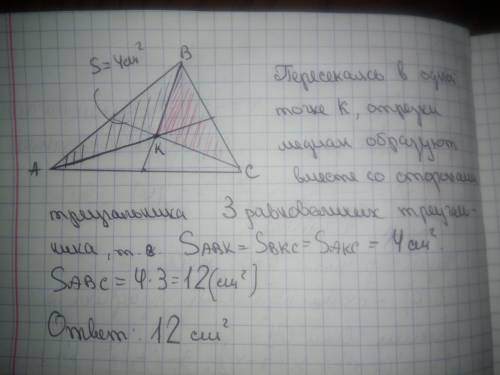 S=4см²
B
A
K
C
Пересекаясь в одной
точке К, отрезки
медиан образуют
вместе со сторонами
треугольника 3 равновеликих треуголь-
ника, т.е. SABK = SBKC = SAKC = 4 см²
SABC = 4·3 = 12 (см²)
Ответ: 12 см²